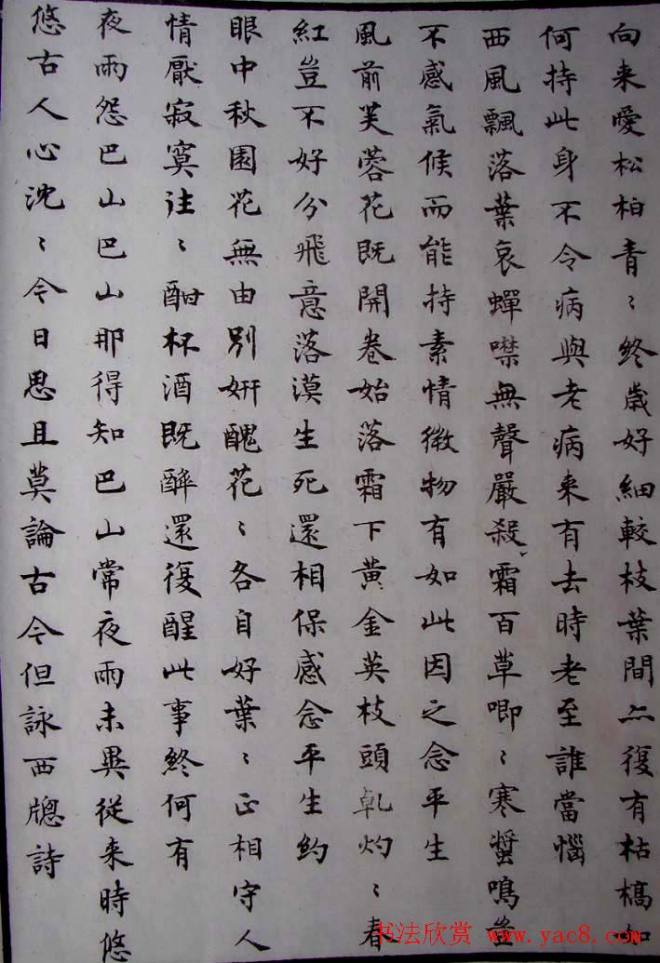 向来愛松柏青〻終歲好細較枝葉間亦復有枯槁如
何持此身不令病與老病来有去時老至誰當惱
西風飄落葉哀蟬噤無聲嚴殺霜百草唧〻寒螿鳴豈
不感氣候而能持素情微物有如此因之念平生
風前芙蓉花既開卷始落霜下黄金英枝頭乹灼〻春
紅豈不好分飛意落漠生死還相保感念平生約
眼中秋園花無由別妍醜花〻各自好葉〻正相守人
情厭寂寞往〻酣杯酒既醉還復醒此事終何有
夜雨怨巴山巴山那得知巴山常夜雨未異從来時悠
悠古人心沈〻今日思且莫論古今但詠西牎詩
书法欣赏 www.yac8.com